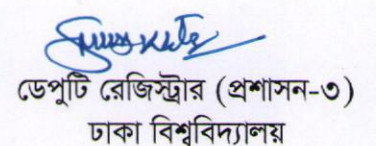 ডেপুটি রেজিস্ট্রার (প্রশাসন-৩)
ঢাকা বিশ্ববিদ্যালয়